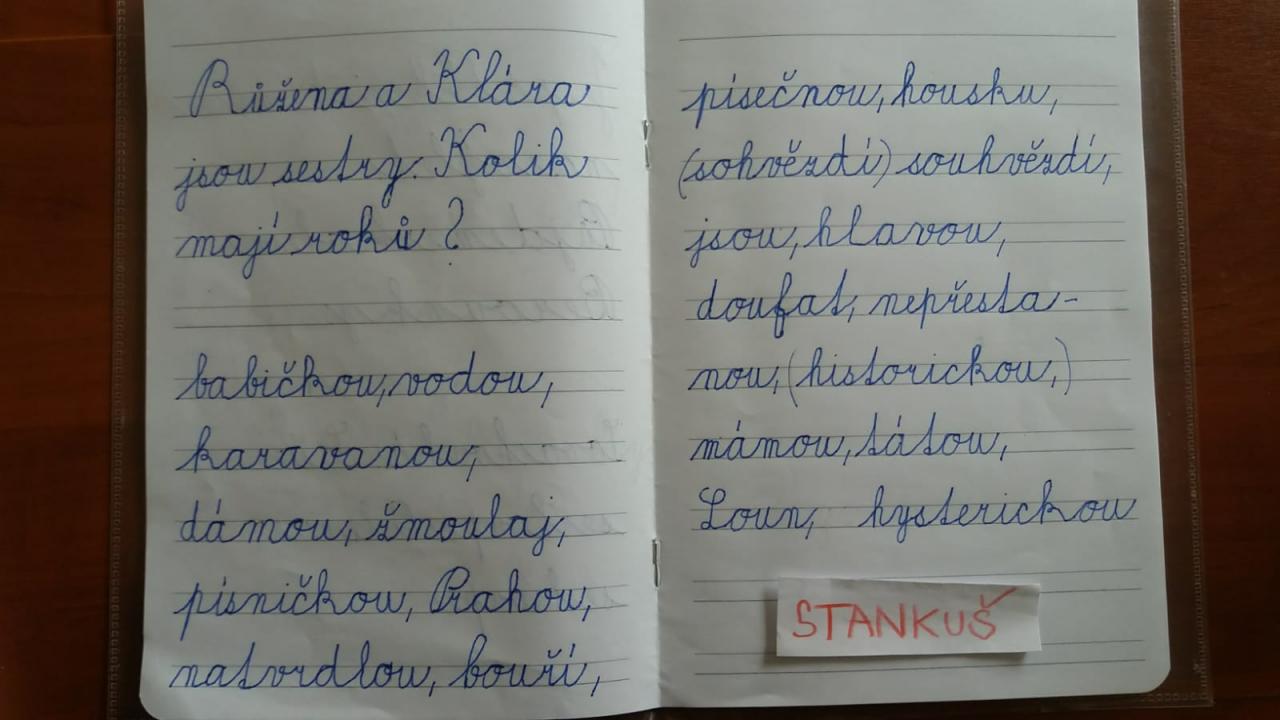 Růžena a Klára
jsou sestry. Kolik
mají roků ?
babičkou, vodou,
karavanou,
dámou, šmoulaj,
písničkou, Prahou,
natvrdlou, bouří,
písečnou, housku,
(sohvězdí) souhvězdí,
jsou, hlavou,
doufat, nepřesta-
nou, (historickou,)
mámou, tátou,
Loun, hysterickou
STANKUŠ